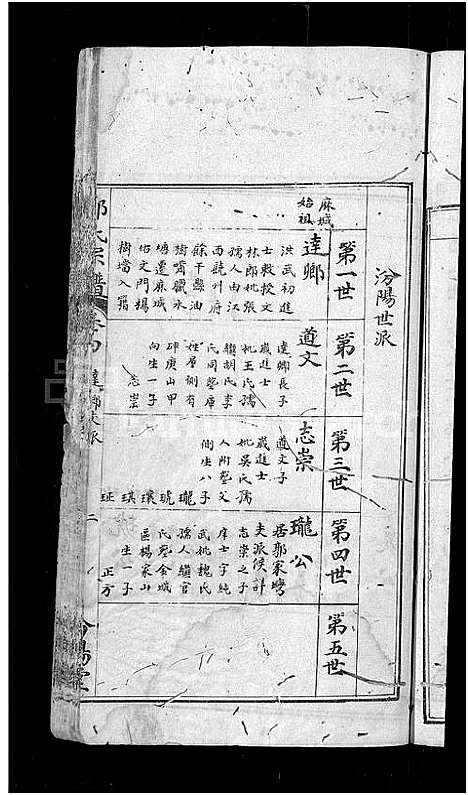 汾陽世派
第一世
第二世
第三世
第四世
第五世
麻城
始祖
達卿
洪武初進
士敕授文
林郎妣張
孺人由江
西饒州府
餘干縣油
樹嘴臘水
塘遷麻城
佑文門楊
樹壋入籍
道文
達卿長子
歲進士
妣王氏孺
氏同塟庫
碑庚山甲
向生一子
志崇
志崇
道文子
歲進士
妣吳氏孺
人附塟父
側生八子
瓏
琥
環
琪
玨
瓏公
居郭家塆
夫派候計
志崇之子
庠士字純
武妣魏氏
孺人驥官
氏塟金城
區楊家山
生一子
正方
氏宗譜
達卿支派
二
汾陽堂